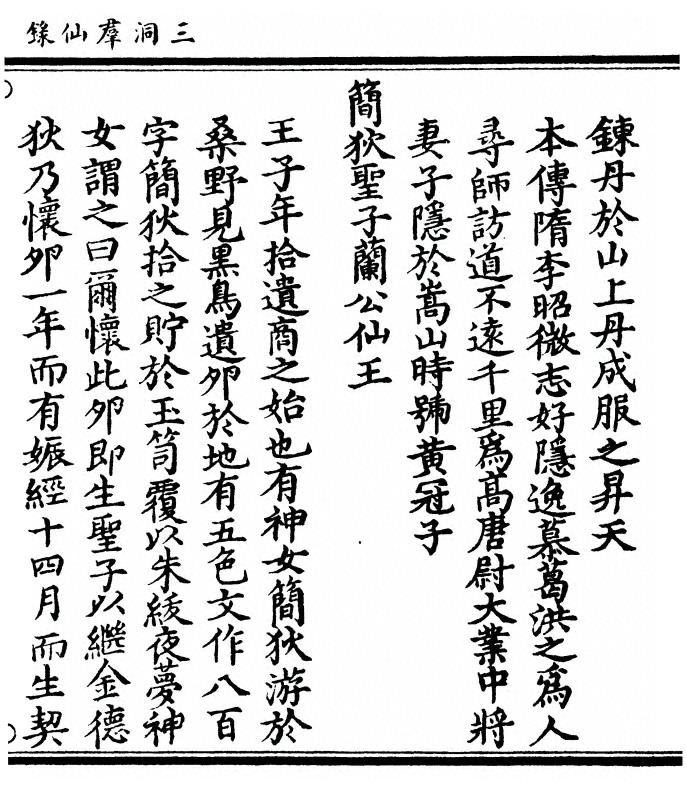 三洞羣仙錄
鍊丹於山上丹成服之昇天
本傳隋李昭微志好隱逸慕葛洪之為人
尋師訪道不遠千里爲高唐尉大業中將
妻子隱於嵩山時號黄冠子
簡狄聖子蘭公仙王
王子年拾遺商之始也有神女簡狄游於
桑野見黒鳥遺卵於地有五色文作八百
字簡狄拾之貯於玉笥覆以朱紱夜夢神
女謂之曰爾懷此卵即生聖子以繼金德
狄乃懷卵一年而有娠經十四月而生契